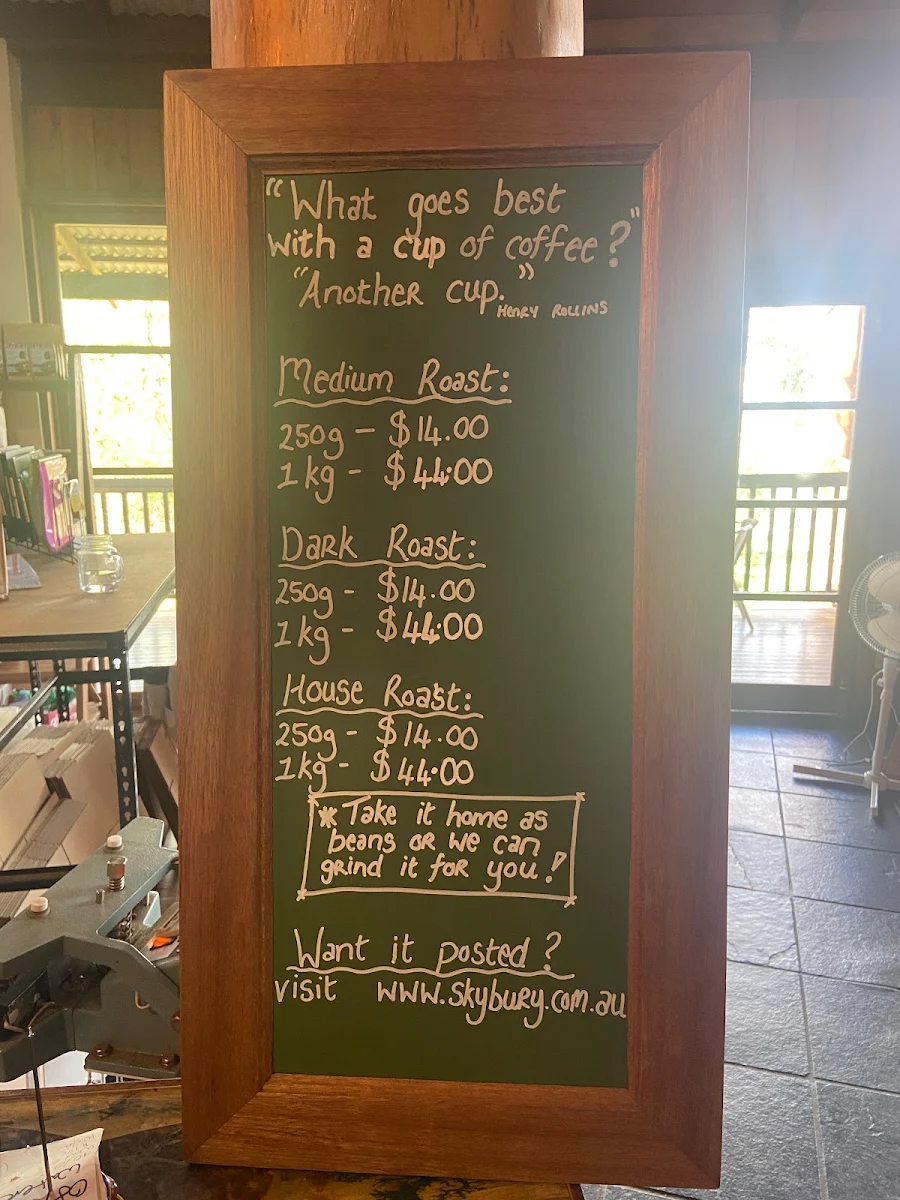 "What goes best
with a cup of coffee?"
"Another cup."
HENRY ROLLINS
Medium Roast:
250g - $14.00
1kg - $44.00
Dark Roast:
250g - $14.00
1kg - $44.00
House Roast:
250g - $14.00
1kg - $44.00
* Take it home as
beans or we can
grind it for you!
Want it posted?
visit www.skybury.com.au